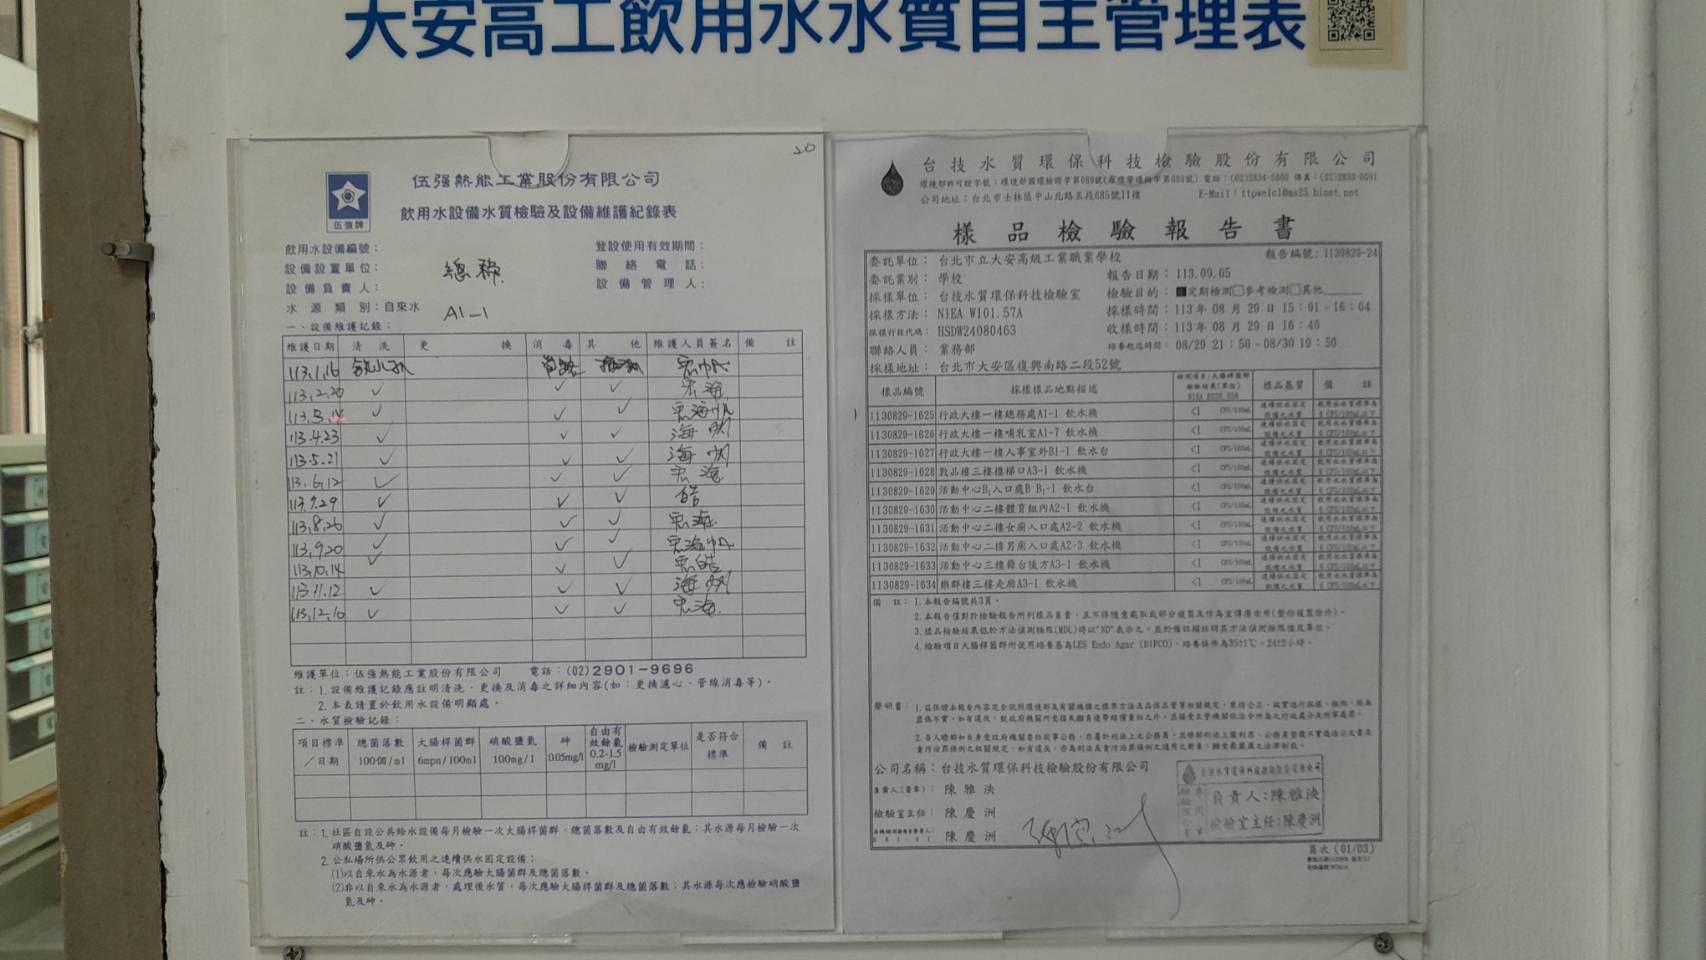 大安高工飲用水水質自主管理表
20
伍強熱能工業股份有限公司
伍強牌
飲用水設備水質檢驗及設備維護紀錄表
飲用水設備編號：
登設使用有效期間：
設備設置單位：總務
聯絡電話：
設備負責人：
設備管理人：
水源類別：自來水
A1-1
一、設備維護記錄：
維護日期 清洗 更換 消毒 其他 維護人員簽名 備註
113.1.16
113.2.20 ✓ ✓ ✓ 宏海
113.3.14 ✓ ✓ ✓
113.4.23 ✓ ✓ ✓
113.5.21 ✓ ✓ ✓
113.6.12 ✓ ✓ ✓ 宏海
113.7.29 ✓ ✓ ✓ 皓
113.8.26 ✓ ✓ ✓ 宏海
113.9.20 ✓ ✓ ✓
113.10.14 ✓ ✓ ✓ 宏皓
113.11.12 ✓ ✓ ✓
113.12.10 ✓ ✓ ✓ 宏海
維護單位：伍強熱能工業股份有限公司 電話：(02)2901-9696
註：1. 設備維護記錄應註明清洗、更換及消毒之詳細內容(如：更換濾心、管線消毒等)。
2. 本表請置於飲用水設備明顯處。
二、水質檢驗記錄：
項目標準／日期 總菌落數 100個/ml 大腸桿菌群 6mpn/100ml 硝酸鹽氮 100mg/l 砷 0.05mg/l 自由有效餘氯 0.2-1.5 mg/l 檢驗測定單位 是否符合標準 備註
註：1. 社區自設公共給水設備每月檢驗一次大腸桿菌群、總菌落數及自由有效餘氯；其水源每月檢驗一次
硝酸鹽氮及砷。
2. 公私場所供公眾飲用之連續供水固定設備：
(1)以自來水為水源者，每次應驗大腸菌群及總菌落數。
(2)非以自來水為水源者，處理後水質，每次應驗大腸桿菌群及總菌落數；其水源每次應檢驗硝酸鹽
氮及砷。
台技水質環保科技檢驗股份有限公司
公司地址：台北市士林區中山北路五段685號11樓
樣品檢驗報告書
委託單位：台北市立大安高級工業職業學校
報告編號：1130829-24
委託業別：學校
報告日期：113.09.05
採樣單位：台技水質環保科技檢驗室
檢驗目的：■定期檢測□參考檢測□其他
採樣方法：NIEA W101.57A
採樣時間：113年08月29日15:01-16:04
採樣行程代碼：HSDW24080463
收樣時間：113年08月29日16:40
聯絡人員：業務部
培養起迄時間：08/29 21:50-08/30 19:50
採樣地址：台北市大安區復興南路二段52號
樣品編號 採樣樣品地點描述 樣品基質 備註
1130829-1625 行政大樓一樓總務處A1-1 飲水機 <1
1130829-1626 行政大樓一樓哺乳室A1-7 飲水機 <1
1130829-1627 行政大樓一樓人事室外B1-1 飲水台 <1
1130829-1628 敦品樓三樓樓梯口A3-1 飲水機 <1
1130829-1629 活動中心B1入口處B B1-1 飲水台 <1
1130829-1630 活動中心二樓體育組內A2-1 飲水機 <1
1130829-1631 活動中心二樓女廁入口處A2-2 飲水機 <1
1130829-1632 活動中心二樓男廁入口處A2-3 飲水機 <1
1130829-1633 活動中心三樓舞台後方A3-1 飲水機 <1
1130829-1634 樂群樓三樓走廊A3-1 飲水機 <1
備註：1. 本報告編號共3頁。
2. 本報告僅對於檢驗報告所列樣品負責，且不得隨意截取或部分複製及作為宣傳廣告用(整份複製除外)。
3. 樣品檢驗結果低於方法偵測極限(MDL)時以"ND"表示之，並於備註欄註明其方法偵測極限值及單位。
4. 檢驗項目大腸桿菌群所使用培養基為LES Endo Agar (DIFCO)，培養條件為35±1℃、24±2小時。
公司名稱：台技水質環保科技檢驗股份有限公司
負責人(簽章)：陳雅泱
檢驗室主任：陳慶洲
陳慶洲
負責人：陳雅泱
檢驗室主任：陳慶洲
頁次(01/03)